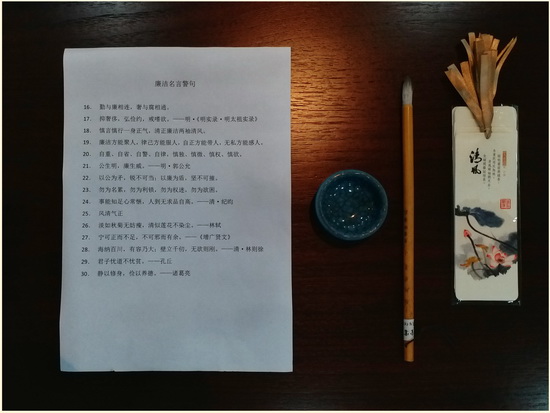 廉洁名言警句
16. 勤与廉相连,奢与腐相连。
17. 抑奢侈,弘俭约,戒嗜欲。——明·《明实录·明太祖实录》
18. 慎言慎行一身正气,清正廉洁两袖清风。
19. 廉洁方能聚人,律己方能服人,自正方能带人,无私方能感人。
20. 自重、自省、自警、自律,慎独、慎微、慎权、慎欲。
21. 公生明,廉生威。——明·郭允光
22. 以公为矛,锐不可当;以廉为盾,坚不可摧。
23. 勿为名累,勿为利锁,勿为权迷,勿为欲困。
24. 事能知足心常惬,人到无求品自高。——清·纪昀
25. 风清气正
26. 淡如秋菊无妨瘦,清似莲花不染尘。——林轼
27. 宁可正而不足,不可邪而有余。——《增广贤文》
28. 海纳百川,有容乃大;壁立千仞,无欲则刚。——清·林则徐
29. 君子忧道不忧贫。——孔丘
30. 静以修身,俭以养德。——诸葛亮
清风